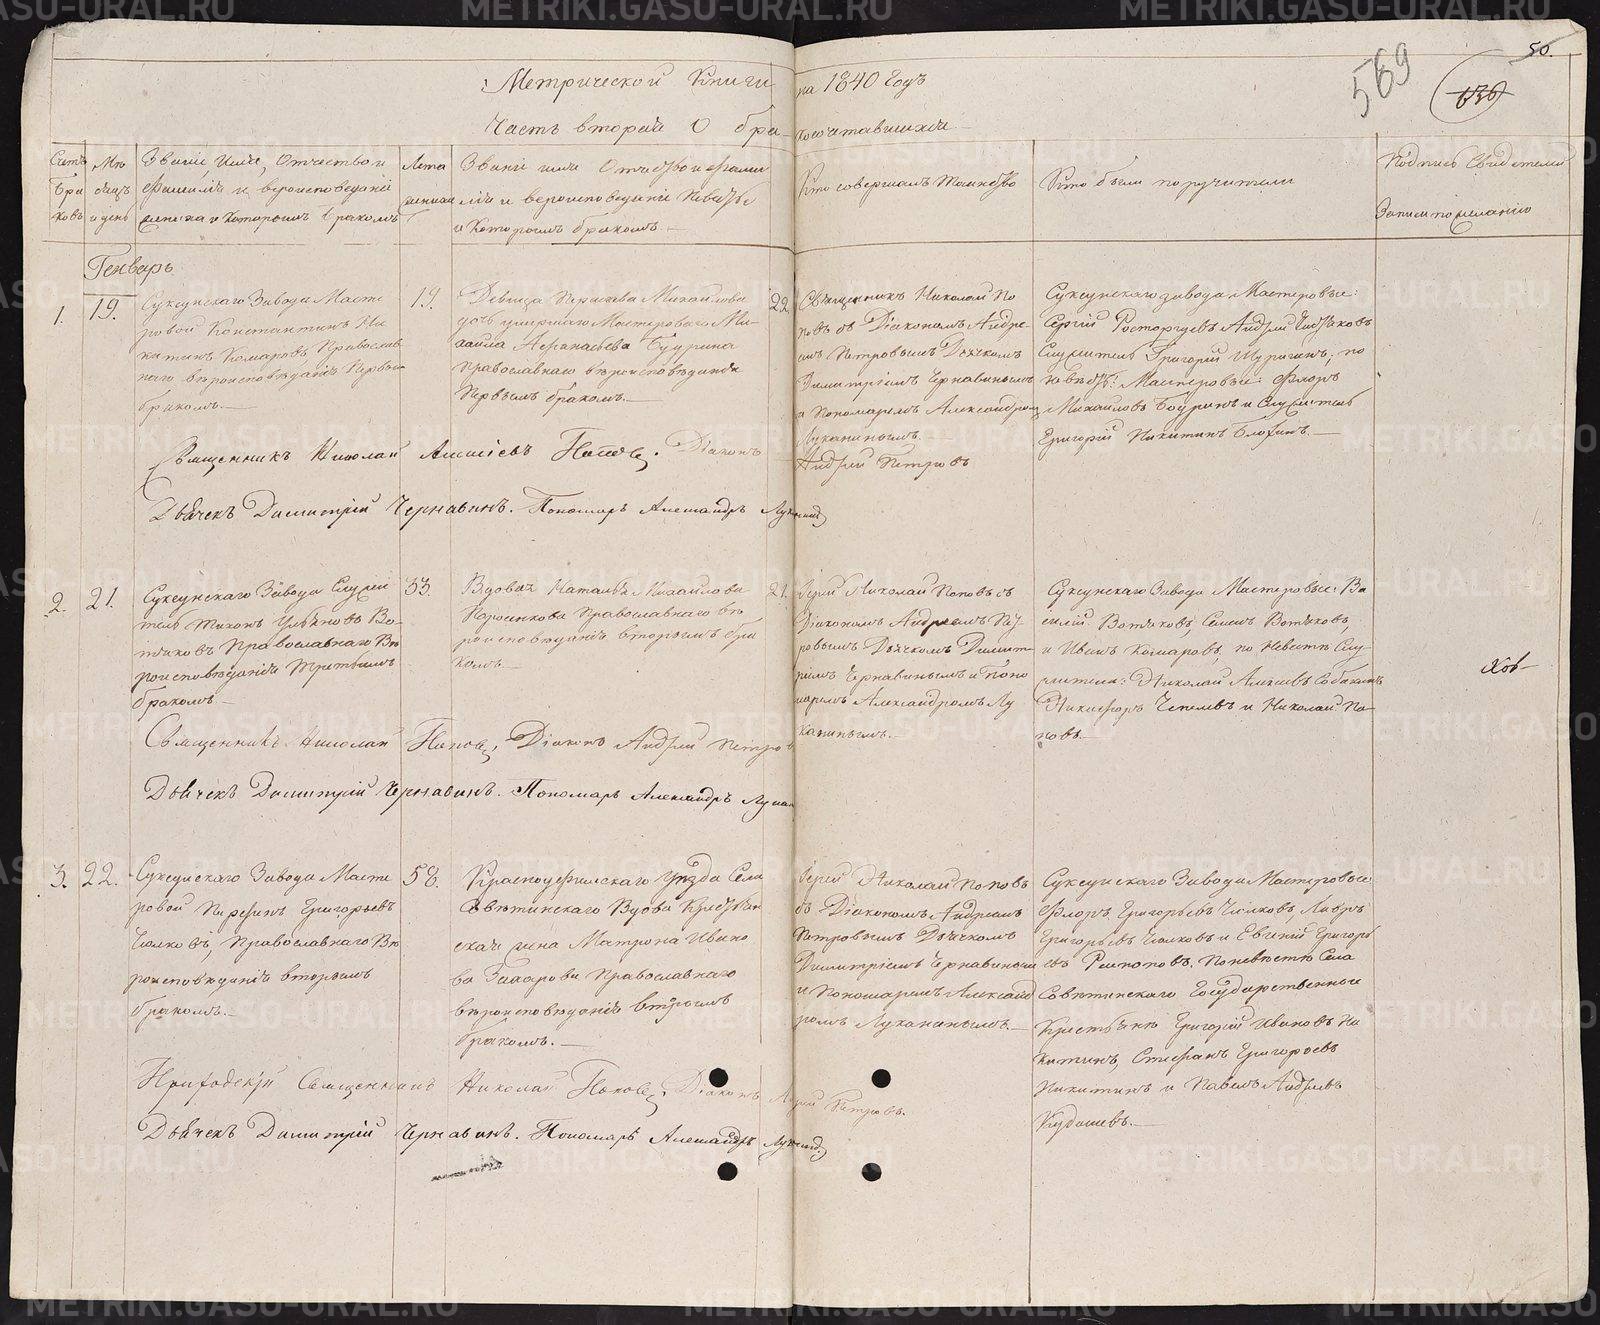 Метрической Книги на 1840 годъ
Часть вторая О бракосочетавшихся
589
50.
Счетъ Браковъ
Мѣсяцъ и день
Званіе, Имя, Отчество и
Фамилія и вероисповеданіе
жениха и Которымъ бракомъ
Лета жениха
Званіе имя Отчество и Фамилія
и вероисповеданіе Невѣсты
и Которымъ бракомъ
Кто совершалъ Таинство
Кто были поручители
Подпись Свидетелей
Записи по желанію
Генварь
1.
19.
Суксунскаго Завода Мастеровой
Константинъ Никитинъ
Комаровъ Православнаго
вѣроисповѣданія Первымъ
бракомъ.
19.
Девица Параскева Михайлова
дочь умершаго Мастероваго Михаила
Афанасьева Бурина
Православнаго вѣроисповѣданія
Первымъ бракомъ.
22.
Священникъ Николай Поповъ
съ Діакономъ Андреемъ
Петровымъ Дьячкомъ
Димитріемъ Чернавинымъ
и Пономаремъ Александромъ
Луканинымъ.
Суксунскаго завода Мастеровые:
Сергій Расторгуевъ Андрей
Служитель Григорій по
невѣстѣ: Мастеровые: Флоръ
Михайловъ Бауринъ и Служитель
Григорій Никитинъ
Священникъ Николай Алексіевъ Поповъ. Діаконъ Андрей Петровъ
Дьячекъ Димитрій Чернавинъ. Пономарь Александръ Луканинъ
2.
21.
Суксунскаго Завода Служитель
Тихонъ Вотяковъ
Православнаго Вѣроисповѣданія
Третьимъ
бракомъ
33.
Вдова Наталья Михайлова
Православнаго вѣроисповѣданія
вторымъ бракомъ
21.
Іерей Николай Поповъ съ
Діакономъ Андреемъ Петровымъ
Дьячкомъ Димитріемъ
Чернавинымъ и Пономаремъ
Александромъ Луканинымъ.
Суксунскаго Завода Мастеровые: Василій
Вотяковъ, Семенъ Вотяковъ,
и Иванъ Комаровъ, по Невестѣ Служители:
Николай Алексеевъ Собакинъ
Никифоръ Чепелевъ и Николай Поповъ.
Священникъ Николай Поповъ, Діаконъ Андрей Петровъ
Дьячекъ Димитрій Чернавинъ. Пономарь Александръ Лукан
3.
22.
Суксунскаго Завода Мастеровой
Парфенъ Григорьевъ
Чолковъ, Православнаго Вѣроисповѣданія
вторымъ
бракомъ.
58.
Красноуфимскаго Уѣзда Села
Совѣтинскаго Вдова Крестьянская
жена Матрона Иванова
Захарова Православнаго
вѣроисповѣданія вторымъ
бракомъ.
Іерей Николай Поповъ
съ Діакономъ Андреемъ
Петровымъ Дьячкомъ
Димитріемъ Чернавинымъ
и Пономаремъ Александромъ
Луканинымъ.
Суксунскаго Завода Мастеровые:
Флоръ Григорьевъ Чолковъ, Лавръ
Григорьевъ Чолковъ и Евгеній Григорьевъ
по невѣстѣ Села
Совѣтинскаго Государственные
Крестьяне Григорій Ивановъ Никитинъ,
Стефанъ Григорьевъ
Никитинъ и Павелъ Андреевъ
Кудашевъ.
Приходскій Священникъ Николай Поповъ, Діаконъ Андрей Петровъ.
Дьячекъ Димитрій Чернавинъ. Пономарь Александръ Луканинъ.
METRIKI.GASO-URAL.RU